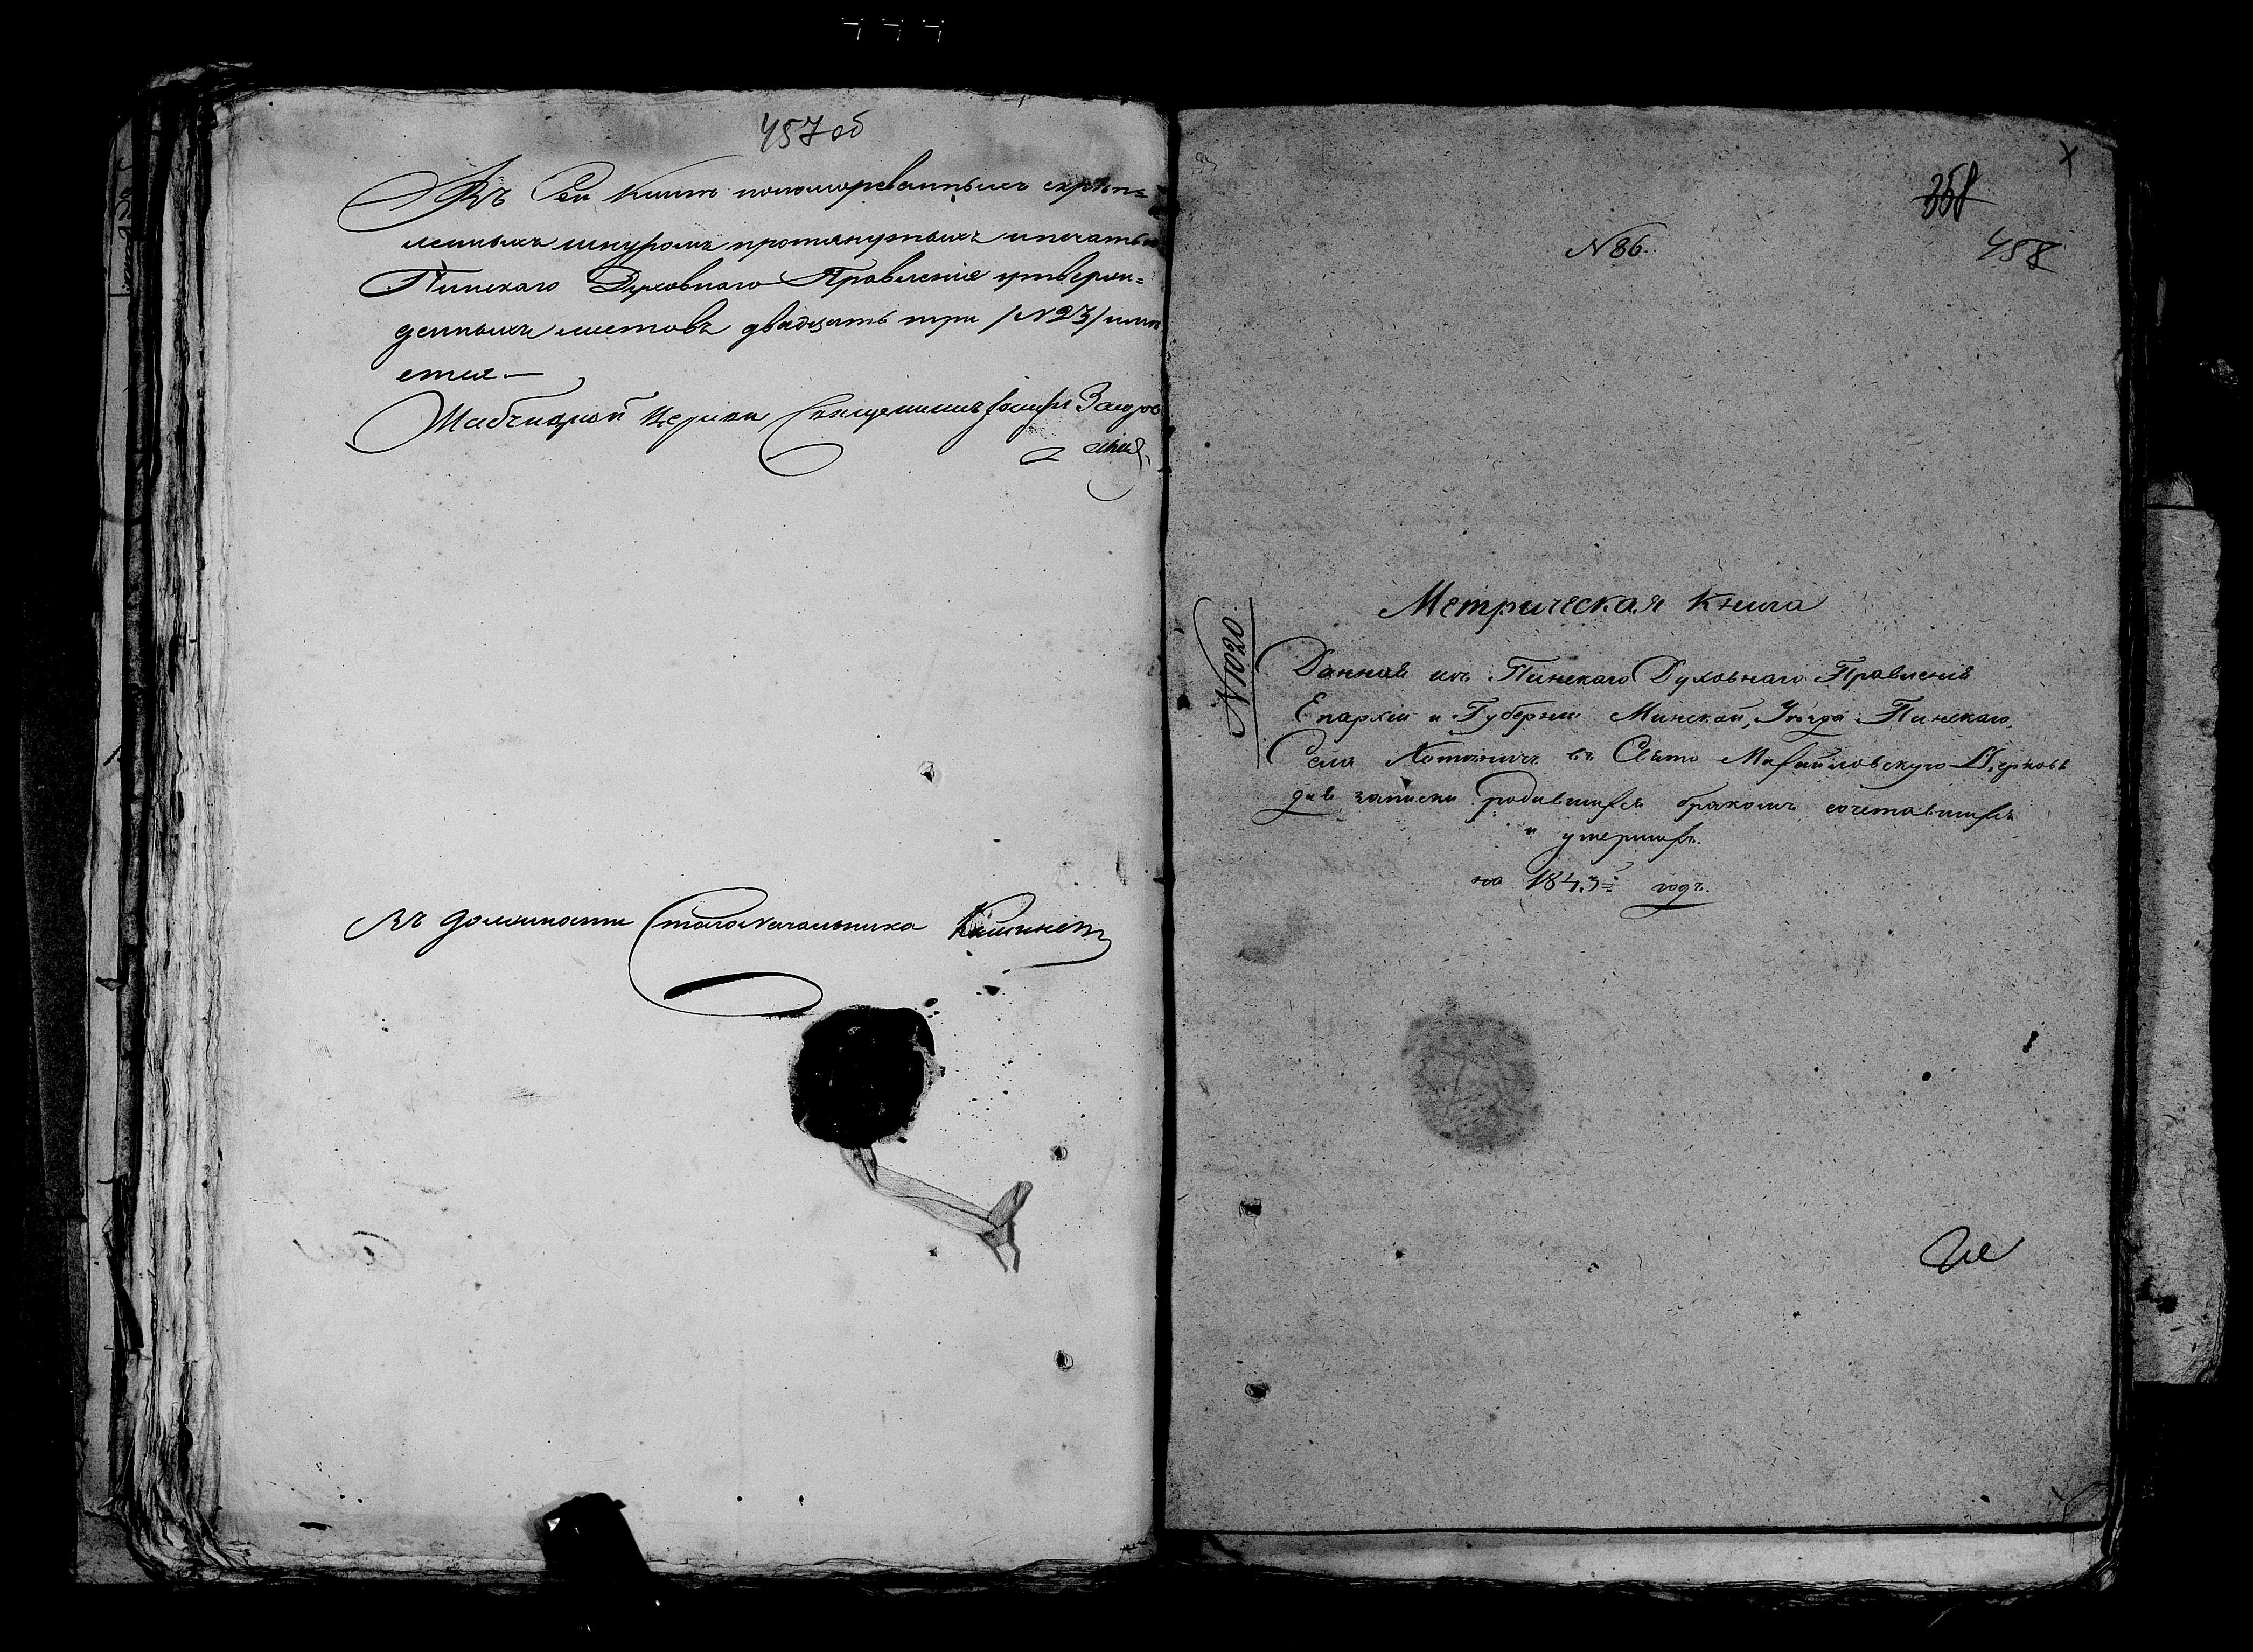 457 об
Въ Сей Книге нономерованныхъ скреп=
ленныхъ шнуромъ протянутыхъ и печатью
Пинскаго Духовнаго Правленія утверж=
денныхъ листовъ двадцать три /№23/ име
ется —
Церкви Священникъ Іосифъ
Въ должности Столоначальника
358
458
№ 86.
№ 1020
Метрическая Книга
Данная изъ Пинскаго Духовнаго Правленія
Епархіи и Губерніи Минской, Уѣзда Пинскаго,
Села Хотыничъ въ Свято Михайловскую Церковь
для записки родившихся бракомъ сочетавшихся
и умершихъ.
на 1843й годъ.